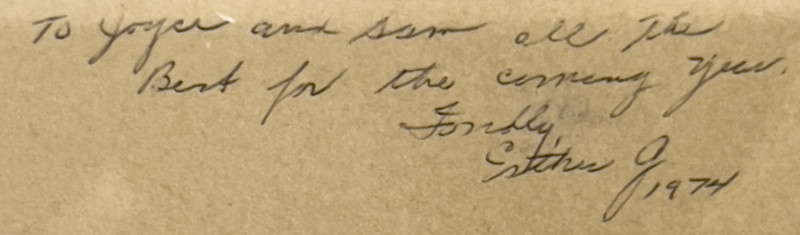 To Joyce and Sam all the
Best for the coming year.
Fondly,
Esther G
1974